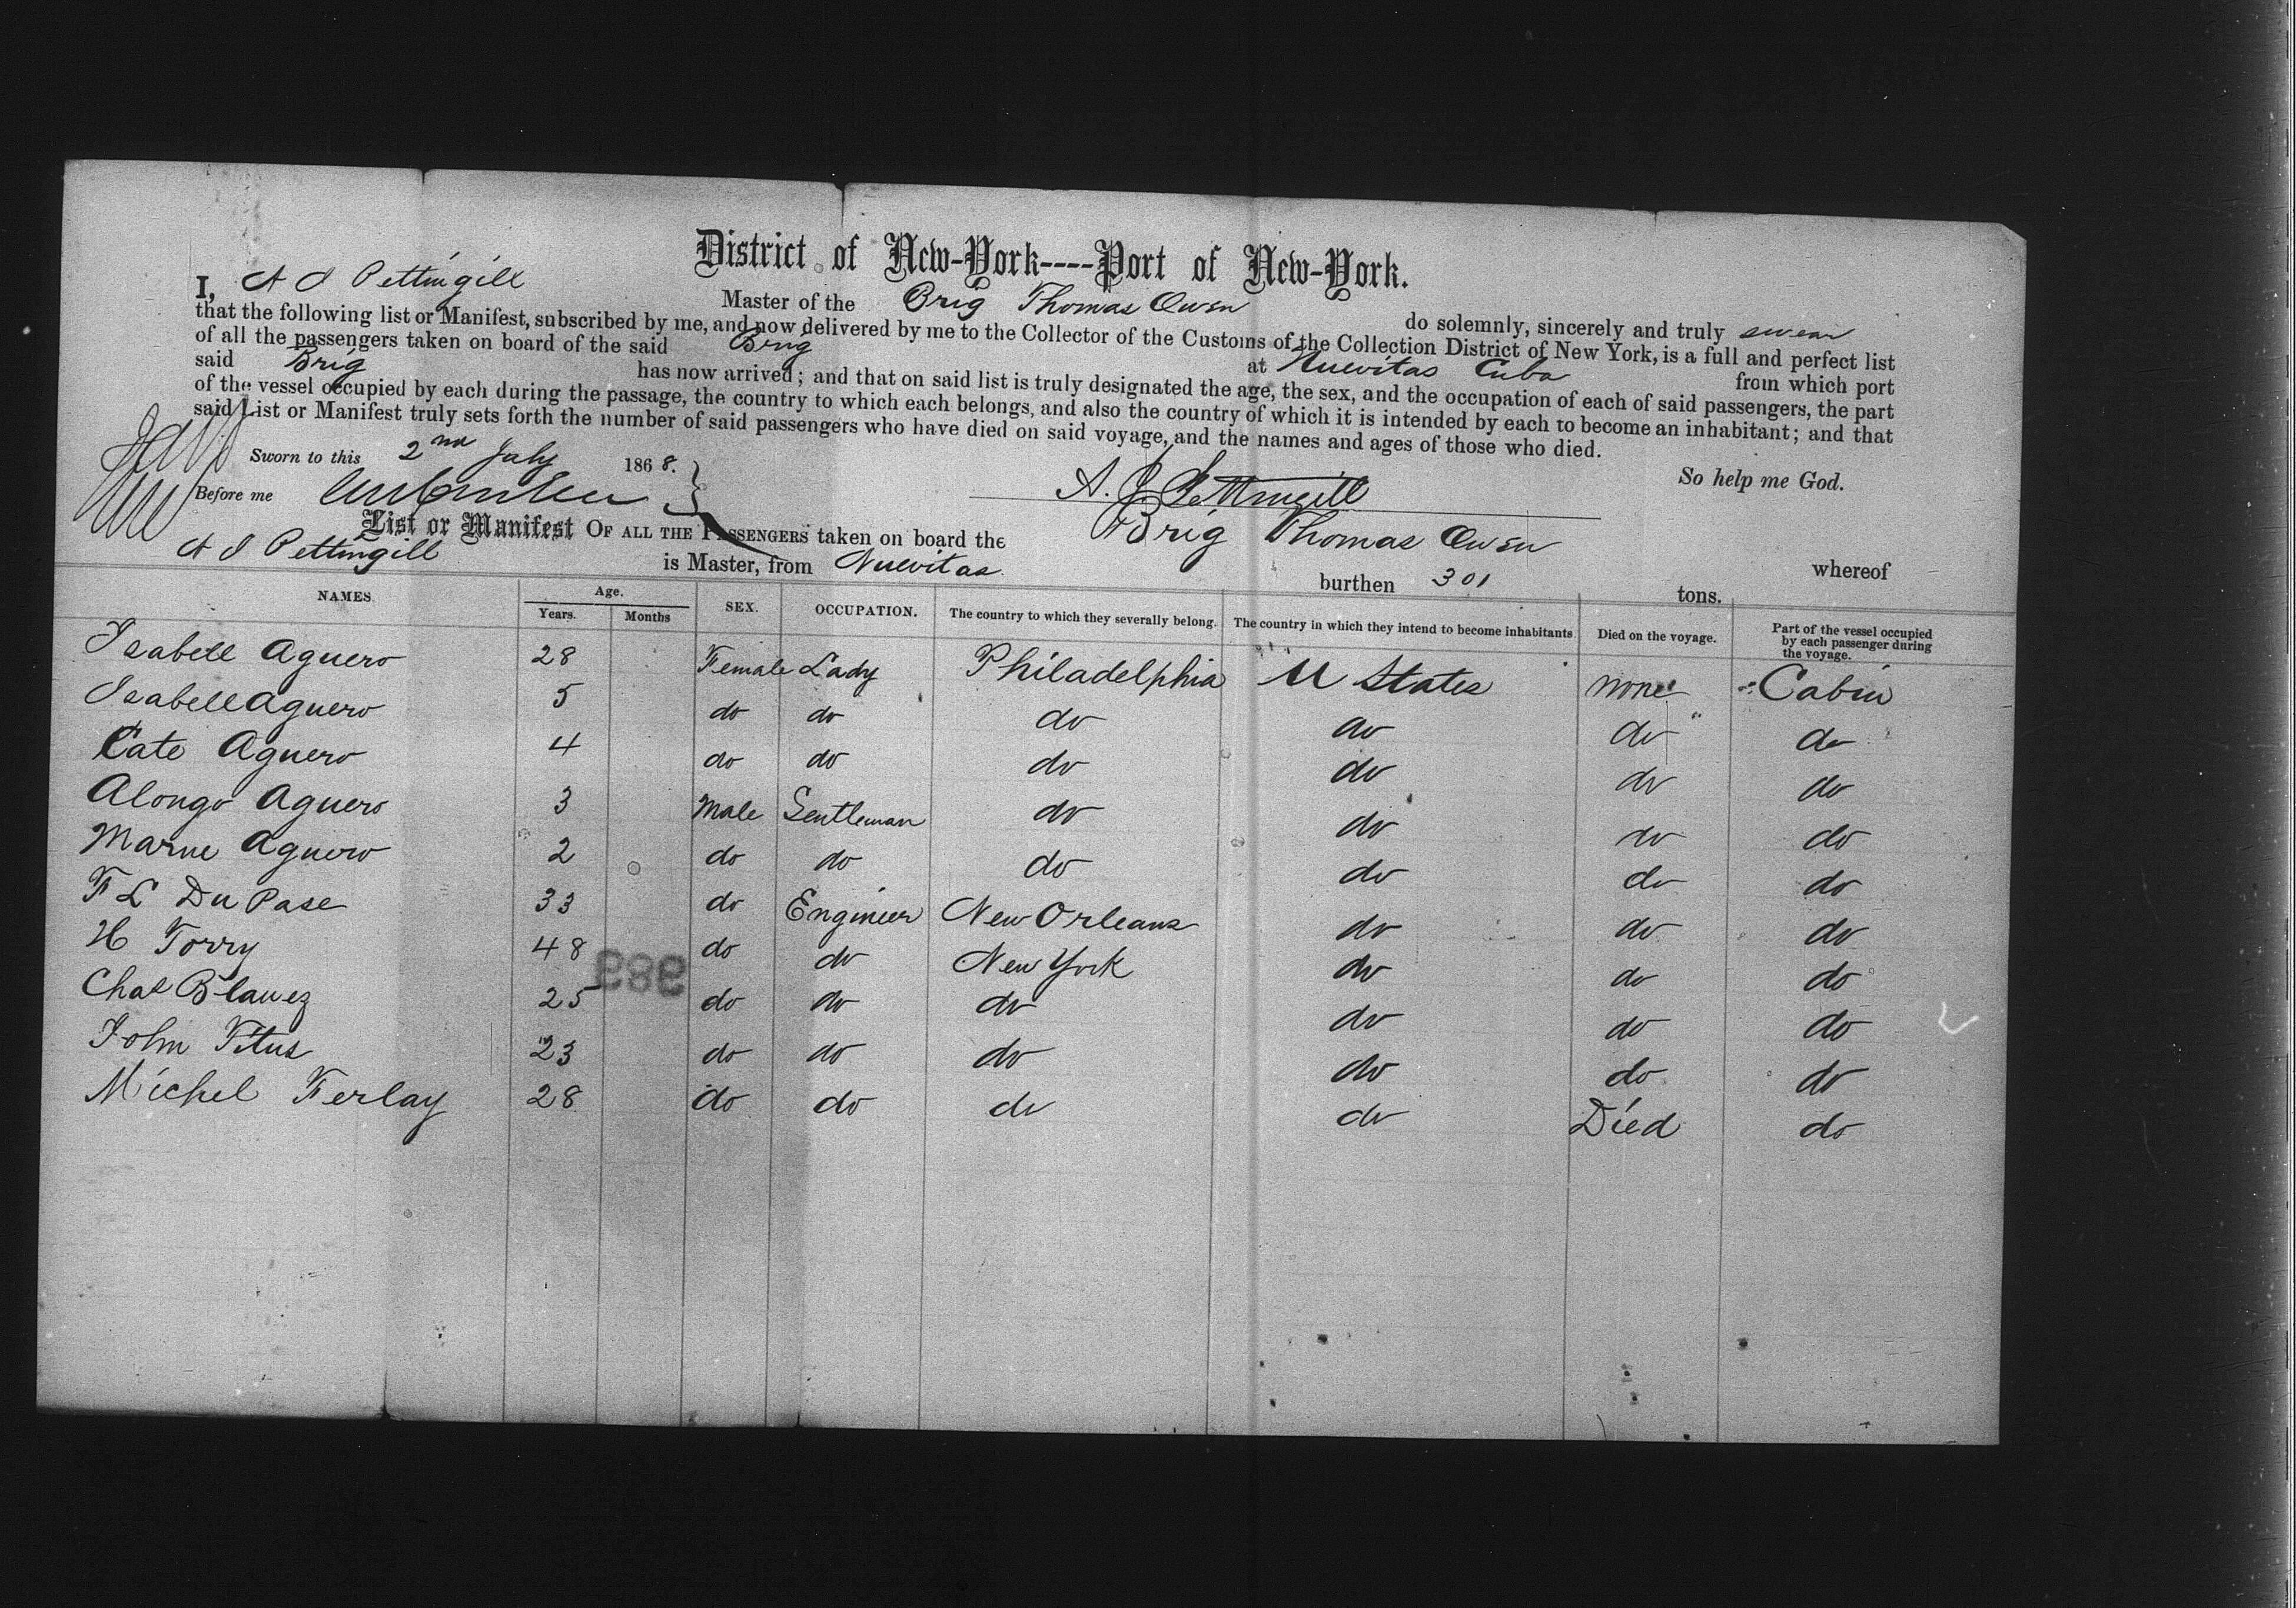 District of New-York----Port of New-York.
I, A J Pettingill Master of the Brig Thomas Owen do solemnly, sincerely and truly swear
that the following list or Manifest, subscribed by me, and now delivered by me to the Collector of the Customs of the Collection District of New York, is a full and perfect list
of all the passengers taken on board of the said Brig at Nuevitas Cuba from which port
said Brig has now arrived; and that on said list is truly designated the age, the sex, and the occupation of each of said passengers, the part
of the vessel occupied by each during the passage, the country to which each belongs, and also the country of which it is intended by each to become an inhabitant; and that
said List or Manifest truly sets forth the number of said passengers who have died on said voyage, and the names and ages of those who died.
Sworn to this 2nd July 1868. So help me God.
Before me A. J. Pettingill
List or Manifest OF ALL THE PASSENGERS taken on board the Brig Thomas Owen whereof
A J Pettingill is Master, from Nuevitas burthen 301 tons.
NAMES. Age. Years. Months SEX. OCCUPATION. The country to which they severally belong. The country in which they intend to become inhabitants Died on the voyage. Part of the vessel occupied by each passenger during the voyage.
Isabell Aguero 28 Female Lady Philadelphia U States none Cabin
Isabell Aguero 5 do do do do do do
Cate Aguero 4 do do do do do do
Alongo Aguero 3 Male Gentleman do do do do
Marne Aguero 2 do do do do do do
F L Du Pase 33 do Engineer New Orleans do do do
H Torry 48 do do New York do do do
989
Chas Blawez 25 do do do do do do
John Titus 23 do do do do do do
Michel Ferlay 28 do do do do Died do